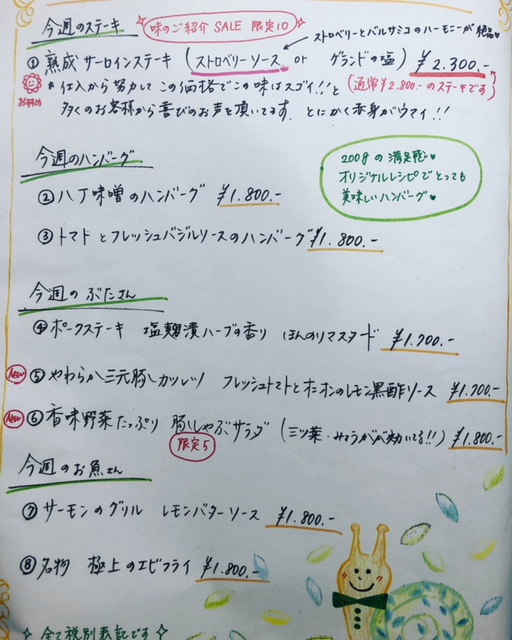 今週のステーキ 味のご紹介 SALE 限定10
ストロベリーとバルサミコのハーモニーが絶品♥
① 熟成サーロインステーキ (ストロベリーソース or グランドの塩) ¥2.300.-
おすすめ *仕入から努力してこの価格でこの味はスゴイ!!と (通常¥2.800.-のステーキです)
多くのお客様から喜びのお声を頂いてます。とにかく赤身がウマイ!!
今週のハンバーグ
200gの満足感♥
オリジナルレシピでとっても
美味しいハンバーグ♥
② 八丁味噌のハンバーグ ¥1.800.-
③ トマトとフレッシュバジルソースのハンバーグ ¥1.800.-
今週のぶたさん
④ ポークステーキ 塩麹漬ハーブの香り ほんのりマスタード ¥1.700.-
NEW ⑤ やわらか三元豚カツレツ フレッシュトマトとオニオンのレモン黒酢ソース ¥1.700.-
NEW ⑥ 香味野菜たっぷり 豚しゃぶサラダ (三ツ葉・みょうがが効いてる!!) ¥1.800.-
限定5
今週のお魚さん
⑦ サーモンのグリル レモンバターソース ¥1.800.-
⑧ 名物 極上のエビフライ ¥1.800.-
☆ 全て税別表記です ☆